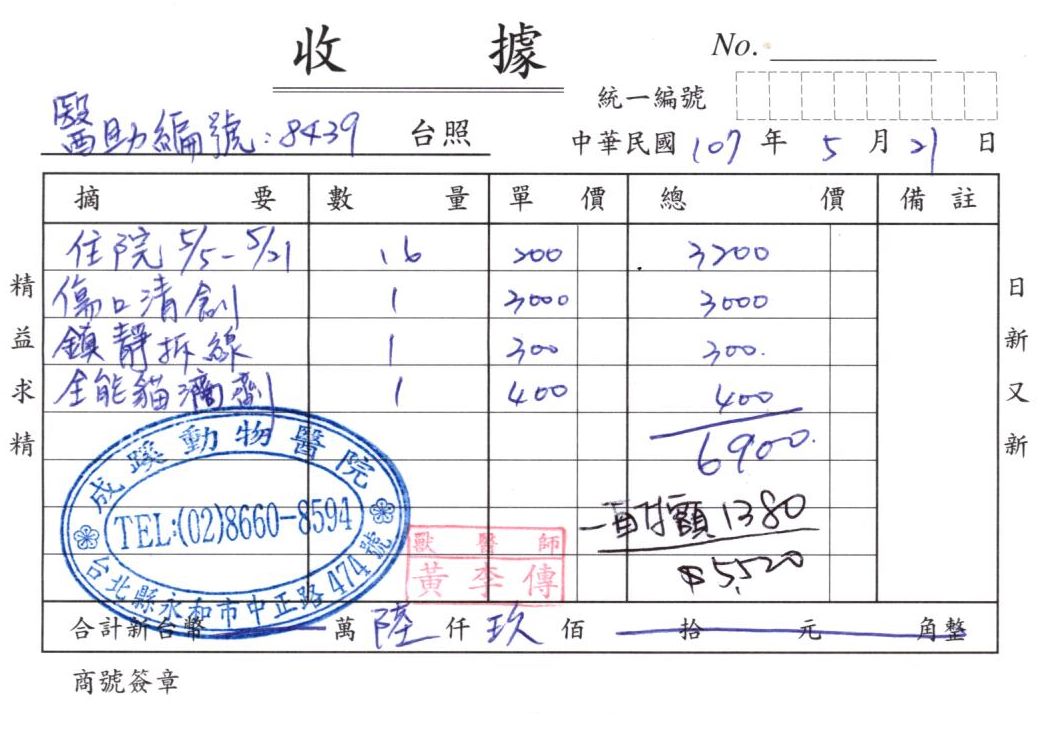 收 據
No.
統一編號
醫助編號:8439 台照
中華民國 107 年 5 月 21 日
摘要 數量 單價 總價 備註
住院 5/5-5/21 16 200 3200
傷口清創 1 3000 3000
鎮靜拆線 1 300 300.
全能貓滴劑 1 400 400
6900.
自付額 1380
$5,520
成蹊動物醫院
TEL:(02)8660-8594
台北縣永和市中正路474號
獸醫師
黃李傳
合計新台幣 萬 陸 仟 玖 佰 拾 元 角整
商號簽章
精益求精
日新又新